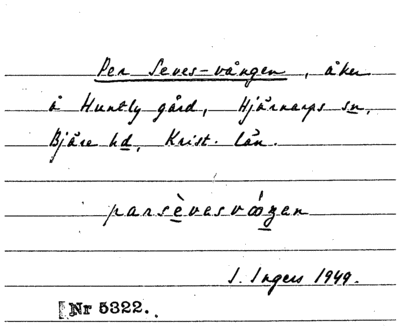 Per Seves-vången, åker
å Huntly gård, Hjärnarps sn,
Bjäre hd, Krist. län.
parsèvesvóoŋen
I. Ingers 1949.
Nr 5322.